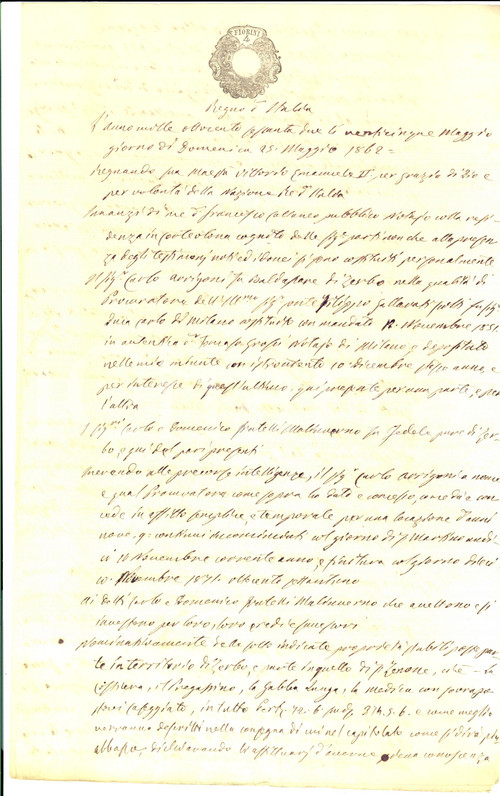 FIORINI
4
Regno d'Italia
L'anno mille ottocento sessanta due li venticinque Maggio
giorno di Domenica 25. Maggio 1862 =
Regnando sua Maestà Vittorio Emanuele II, per grazia di Dio e
per volontà della Nazione Re d'Italia
Innanzi di me d. Francesco pubblico Notajo colla resi
denza in Corteolona cognito delle Sig. parti non che alla presen
za degli testimonj noti ed idonei si sono costituiti personalmente
Il Sig. Carlo Arrigoni fu Baldassare di Zerbo nella qualità di
Procuratore dell'Ill.mo Sig. Conte Filippo Gallarati Scotti fu Sig.
Duca Carlo di Milano costituito con mandato Novembre 1851
in autentico d. Tomaso Grossi Notajo di Milano, e depositato
nelle mie minute con istromento 10 Dicembre stesso anno, e
per interesse di quest'ultimo, qui presente per una parte, e per
l'altra
I Sig.ri Carlo e Domenico fratelli Malinverno fu pure di Zer
bo, e qui del pari presenti
Venendo alle precorse intelligenze, il Sig. Carlo Arrigoni a nome
e qual Procuratore come sopra ha dato e concesso, come dà e con
cede in affitto semplice, e temporale per una locazione d'anni
nove, 9: continui da cominciarsi col giorno di S. Martino undi
ci 11 Novembre corrente anno, e finitura col giorno dieci
10 Novembre 1871. ottocento settantuno
Ai detti Carlo e Domenico fratelli Malinverno che accettano e si
investono per loro, loro eredi e successori
Nominativamente delle sotto indicate proprietà stabili poste par
te in territorio di Zerbo, e parte in quello di S. Zenone, cioè - La
il la Gabba Lunga, la Medica con sovrap
posti caseggiati, in tutto Pert. 72. 6 e come meglio
verranno descritti nella consegna di cui nel capitolato come si dirà più
abbasso, dichiarando li affittuarj d'averne piena conoscenza